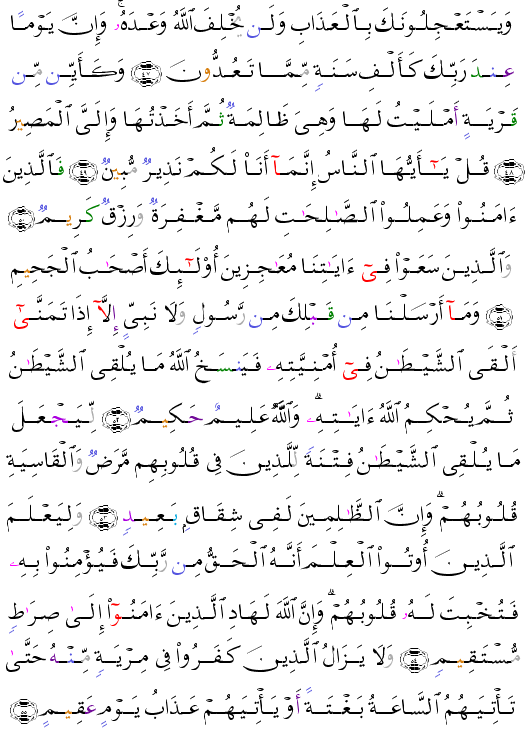 وَيَسْتَعْجِلُونَكَ بِٱلْعَذَابِ وَلَن يُخْلِفَ ٱللَّهُ وَعْدَهُۥ ۚ وَإِنَّ يَوْمًا
عِندَ رَبِّكَ كَأَلْفِ سَنَةٍ مِّمَّا تَعُدُّونَ ﴿٤٧﴾ وَكَأَيِّن مِّن
قَرْيَةٍ أَمْلَيْتُ لَهَا وَهِىَ ظَالِمَةٌ ثُمَّ أَخَذْتُهَا وَإِلَىَّ ٱلْمَصِيرُ
﴿٤٨﴾ قُلْ يَـٰٓأَيُّهَا ٱلنَّاسُ إِنَّمَآ أَنَا۠ لَكُمْ نَذِيرٌ مُّبِينٌ ﴿٤٩﴾ فَٱلَّذِينَ
ءَامَنُوا۟ وَعَمِلُوا۟ ٱلصَّـٰلِحَـٰتِ لَهُم مَّغْفِرَةٌ وَرِزْقٌ كَرِيمٌ ﴿٥٠﴾
وَٱلَّذِينَ سَعَوْا۟ فِىٓ ءَايَـٰتِنَا مُعَـٰجِزِينَ أُو۟لَـٰٓئِكَ أَصْحَـٰبُ ٱلْجَحِيمِ
﴿٥١﴾ وَمَآ أَرْسَلْنَا مِن قَبْلِكَ مِن رَّسُولٍ وَلَا نَبِىٍّ إِلَّآ إِذَا تَمَنَّىٰٓ
أَلْقَى ٱلشَّيْطَـٰنُ فِىٓ أُمْنِيَّتِهِۦ فَيَنسَخُ ٱللَّهُ مَا يُلْقِى ٱلشَّيْطَـٰنُ
ثُمَّ يُحْكِمُ ٱللَّهُ ءَايَـٰتِهِۦ ۗ وَٱللَّهُ عَلِيمٌ حَكِيمٌ ﴿٥٢﴾ لِّيَجْعَلَ
مَا يُلْقِى ٱلشَّيْطَـٰنُ فِتْنَةً لِّلَّذِينَ فِى قُلُوبِهِم مَّرَضٌ وَٱلْقَاسِيَةِ
قُلُوبُهُمْ ۗ وَإِنَّ ٱلظَّـٰلِمِينَ لَفِى شِقَاقٍۭ بَعِيدٍ ﴿٥٣﴾ وَلِيَعْلَمَ
ٱلَّذِينَ أُوتُوا۟ ٱلْعِلْمَ أَنَّهُ ٱلْحَقُّ مِن رَّبِّكَ فَيُؤْمِنُوا۟ بِهِۦ
فَتُخْبِتَ لَهُۥ قُلُوبُهُمْ ۗ وَإِنَّ ٱللَّهَ لَهَادِ ٱلَّذِينَ ءَامَنُوٓا۟ إِلَىٰ صِرَٰطٍ
مُّسْتَقِيمٍ ﴿٥٤﴾ وَلَا يَزَالُ ٱلَّذِينَ كَفَرُوا۟ فِى مِرْيَةٍ مِّنْهُ حَتَّىٰ
تَأْتِيَهُمُ ٱلسَّاعَةُ بَغْتَةً أَوْ يَأْتِيَهُمْ عَذَابُ يَوْمٍ عَقِيمٍ ﴿٥٥﴾